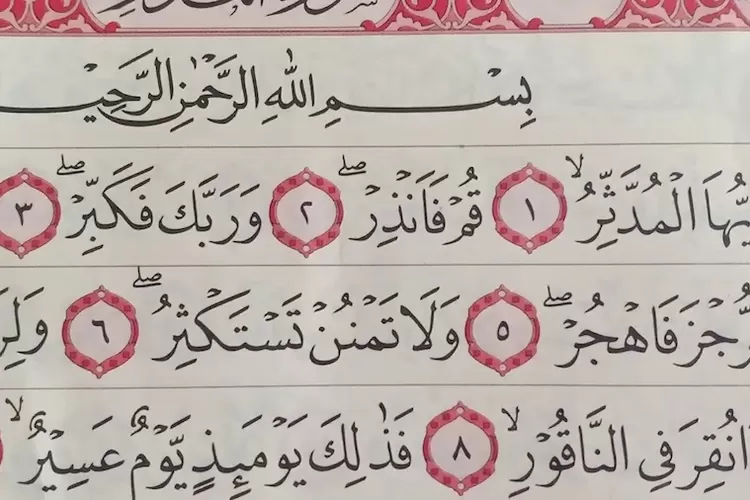 بِسْمِ اللهِ الرَّحْمٰنِ الرَّحِيـ
يُّهَا الْمُدَّثِّرُۙ ١ قُمْ فَاَنْذِرْۖ ٢ وَرَبَّكَ فَكَبِّرْۖ ٣
رُّجْزَ فَاهْجُرْۖ ٥ وَلَا تَمْنُنْ تَسْتَكْثِرُۖ ٦ وَلِرَ
ا نُقِرَ فِى النَّاقُوْرِۙ ٨ فَذٰلِكَ يَوْمَئِذٍ يَّوْمٌ عَسِيْرٌۙ